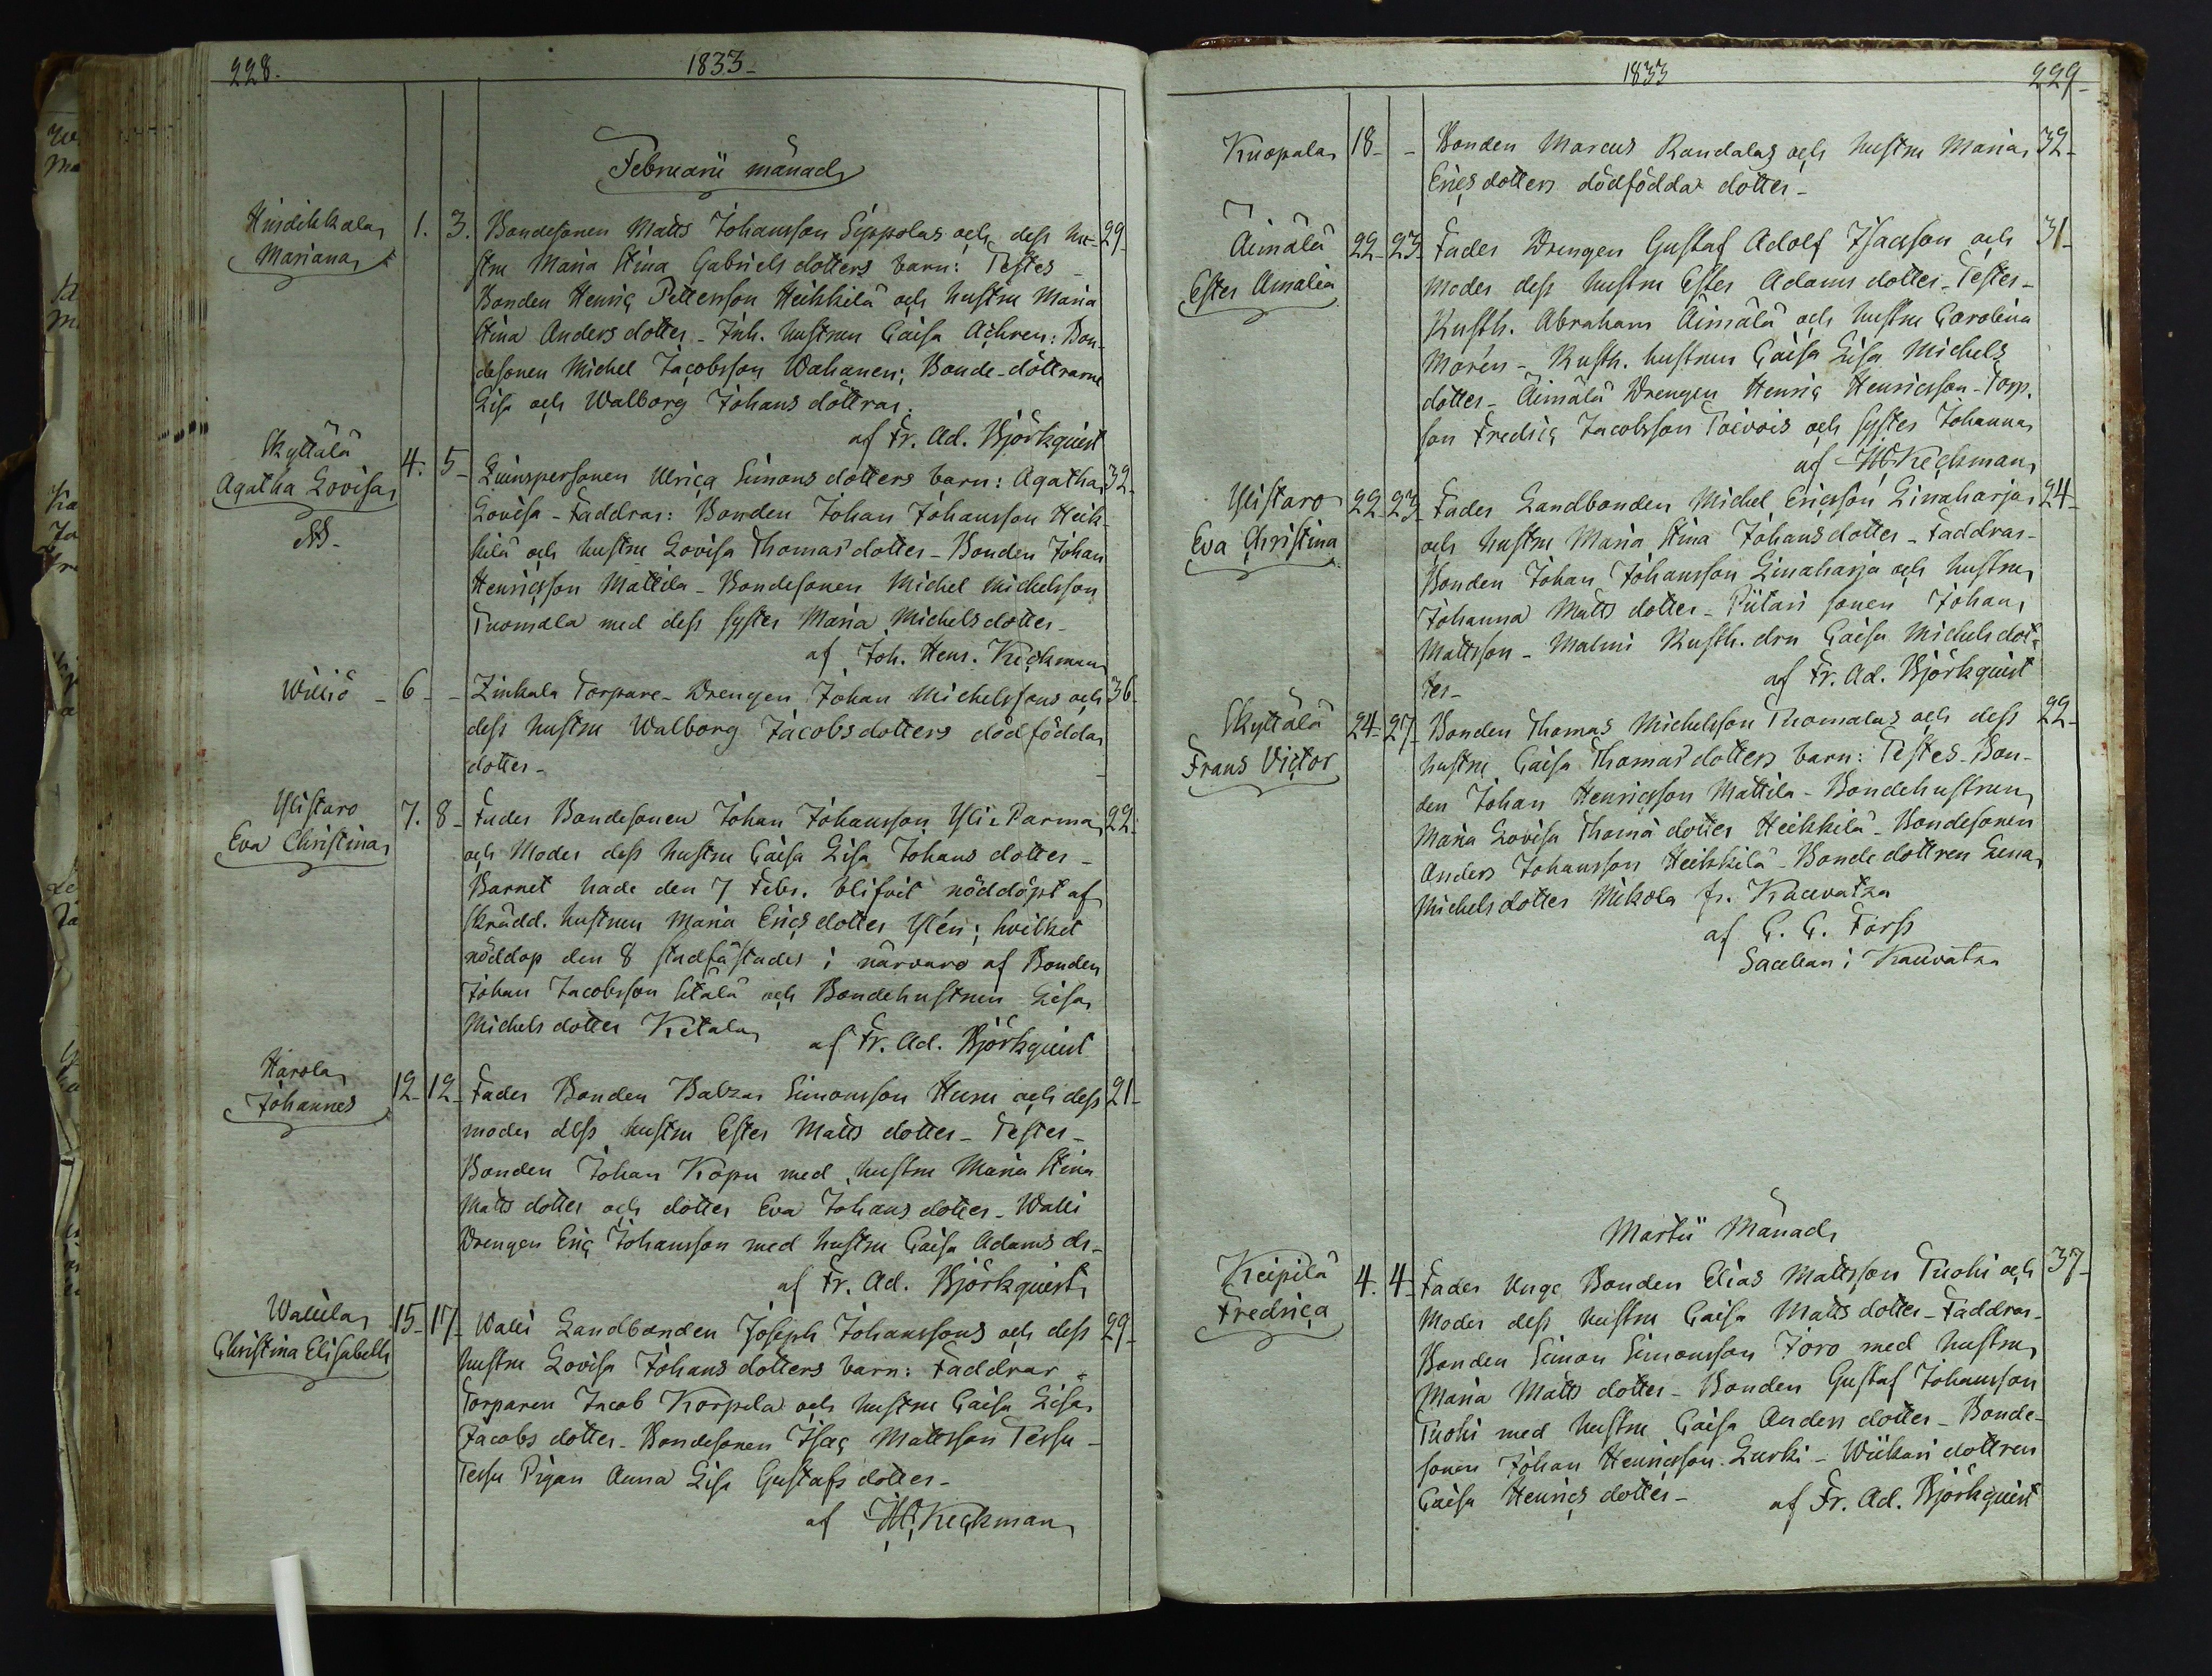 228.
1833-
Februarii månad
Hindikkala 1. 3. Bondesonen Matts Johansson Sippolas och dess hu- 29-
Mariana stru Maria Stina Gabriels dotters barn: Testes -
Bonden Henric Pettersson Heikkilä och hustru Maria
Stina Anders dotter - Inh. hustrun Caisa Achren: Bon-
desonen Michel Jacobsson Wahanen; Bonde-döttrarne
Lisa och Walborg Johans döttrar.
af Fr. Ad. Björkquist
Skyttälä 4. 5- Qvinspersonen Ulrica Simons dotters barn: Agatha 32-
Agatha Lovisa Lovisa - Faddrar: Bonden Johan Johansson Heik-
kilä och hustru Lovisa Thomas dotter - Bonden Johan
Henricsson Mattila - Bondesonen Michel Michelsson
Tuomala med dess syster Maria Michels dotter -
af Joh. Henr. Keckman
Williö - 6 - - Zinkala Torpare-Drengen Johan Michelssons och 36-
dess hustru Walborg Jacobs dotters dödfödda
dotter -
Ylistaro 7. 8- Fader Bondesonen Johan Johansson Yli-Parma 22-
Eva Christina och Moder dess hustru Caisa Lisa Johans dotter -
Barnet hade den 7 Febr. blifvit nöddöpt af
skrädd. hustrun Maria Erics dotter Ylén; hvilket
nöddop den 8 stadfästades i närvaro af Bonden
Johan Jacobsson Sitälä och Bondehustrun Lisa
Michels dotter Ketala af Fr. Ad. Björkquist
Harola 12- 12- Fader Bonden Balzar Simonsson Huru och dess 21-
Johannes moder dess hustru Ester Matts dotter - Testes -
Bonden Johan Köpu med hustru Maria Stina
Matts dotter och dotter Eva Johans dotter - Walli
Drengen Eric Johansson med hustru Caisa Adams dr -
af Fr. Ad. Björkquist
Walula 15- 17- Walli Landbonden Joseph Johanssons och dess 29-
Christina Elisabeth hustru Lovisa Johans dotters barn: Faddrar -
Torparen Jacob Korpela och hustru Caisa Lisa
Jacobs dotter - Bondesonen Isac Mattsson Tersu -
Tersu Pigan Anna Lisa Gustafs dotter -
af JH Keckman
1833
229-
Kuopala 18- - Bonden Marcus Randalas och hustru Maria 32-
Erics dotters dödfödda dotter -
Äimälä 22- 23- Fader Drengen Gustaf Adolf Isacsson och 31-
Ester Amalia moder dess hustru Ester Adams dotter - Testes -
Rusth. Abraham Äimälä och hustru Carolina
Morén - Rusth. hustrun Caisa Lisa Michels
dotter - Äimälä Drengen Henric Henricsson - Torp.
son Fredric Jacobsson Toivois och syster Johanna
af JH Keckman
Ylistaro 22- 23- Fader Landbonden Michel Ericsson Linaharja 24-
Eva Christina och hustru Maria Stina Johans dotter - Faddrar -
Bonden Johan Johansson Linaharja och hustru
Johanna Matts dotter - Piitari sonen Johan
Mattsson - Malmi Rusth. drn Caisa Michels dot-
ter - af Fr. Ad. Björkquist
Skyttälä 24- 27- Bonden Thomas Michelsson Thomalas och dess 22-
Frans Victor hustru Caisa Thomas dotters barn: Testes - Bon-
den Johan Henricsson Mattila - Bondehustrun
Maria Lovisa Thoma dotter Heikkilä - Bondesonen
Anders Johansson Heikkilä - Bonde dottren Lena
Michels dotter Mikola fr. Kauvatza
af C. G. Forss
Sacellan i Kauvatza
Martii Månad
Keipilä 4. 4- Fader Unge Bonden Elias Mattsson Tuohi och 37-
Fredrica Moder dess hustru Caisa Matts dotter - Faddrar -
Bonden Simon Simonsson Joro med hustru
Maria Matts dotter - Bonden Gustaf Johansson
Tuohi med hustru Caisa Anders dotter - Bonde-
sonen Johan Henricsson Lurki - Wiikari dottren
Caisa Henrics dotter - af Fr. Ad. Björkquist